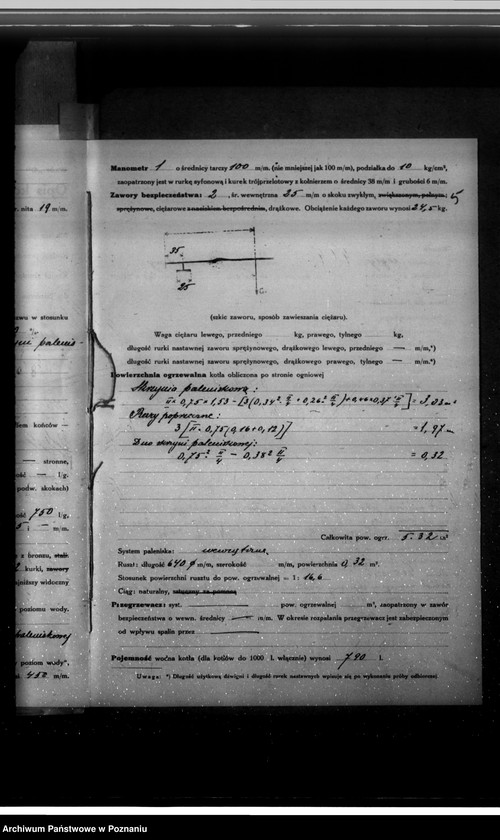 r. nita 19 m/m.
awu w stosunku
łem końców —
— stronne,
ość — l/g.
podw. skokach)
ość 750 l/g,
i — m/m.
z bronzu, stali
kurki, zawory
ajniższy widoczny
poziomu wody.
paleniskowej
poziom wody",
450 m/m.
Manometr 1 o średnicy tarczy 100 m/m. (nie mniejszej jak 100 m/m), podziałka do 10 kg/cm²,
zaopatrzony jest w rurkę syfonową i kurek trójprzelotowy z kołnierzem o średnicy 38 m/m i grubości 6 m/m.
Zawory bezpieczeństwa: 2, śr. wewnętrzna 25 m/m o skoku zwykłym, zwiększonym, pełnym;
sprężynowe, ciężarowe z naciskiem bezpośrednim, drążkowe. Obciążenie każdego zaworu wynosi 24,5 kg.
35
25
(szkic zaworu, sposób zawieszania ciężaru).
Waga ciężaru lewego, przedniego kg, prawego, tylnego kg,
długość rurki nastawnej zaworu sprężynowego, drążkowego lewego, przedniego — m/m,*)
długość rurki nastawnej zaworu sprężynowego, drążkowego prawego, tylnego — m/m.*)
Powierzchnia ogrzewalna kotła obliczona po stronie ogniowej
Skrzynia paleniskowa:
Rury poprzeczne:
3[π·0,75(0,16+0,12)] = 1,97
Dno skrzyni paleniskowej:
0,75² π/4 — 0,38² π/4 = 0,32
Całkowita pow. ogrz. 5.32 m²
System paleniska: wewnętrzne
Ruszt: długość 640 ϕ m/m, szerokość m/m, powierzchnia 0,32 m².
Stosunek powierzchni rusztu do pow. ogrzewalnej = 1: 16,6
Ciąg: naturalny, sztuczny za pomocą
Przegrzewacz: syst. pow. ogrzewalnej m², zaopatrzony w zawór
bezpieczeństwa o wewn. średnicy — m/m. W okresie rozpalania przegrzewacz jest zabezpieczonym
od wpływu spalin przez —
Pojemność wodna kotła (dla kotłów do 1000 l. włącznie) wynosi 790 l.
Uwaga: *) Długość użytkową dźwigni i długość rurek nastawnych wpisuje się po wykonaniu próby odbiorczej
Archiwum Państwowe w Poznaniu